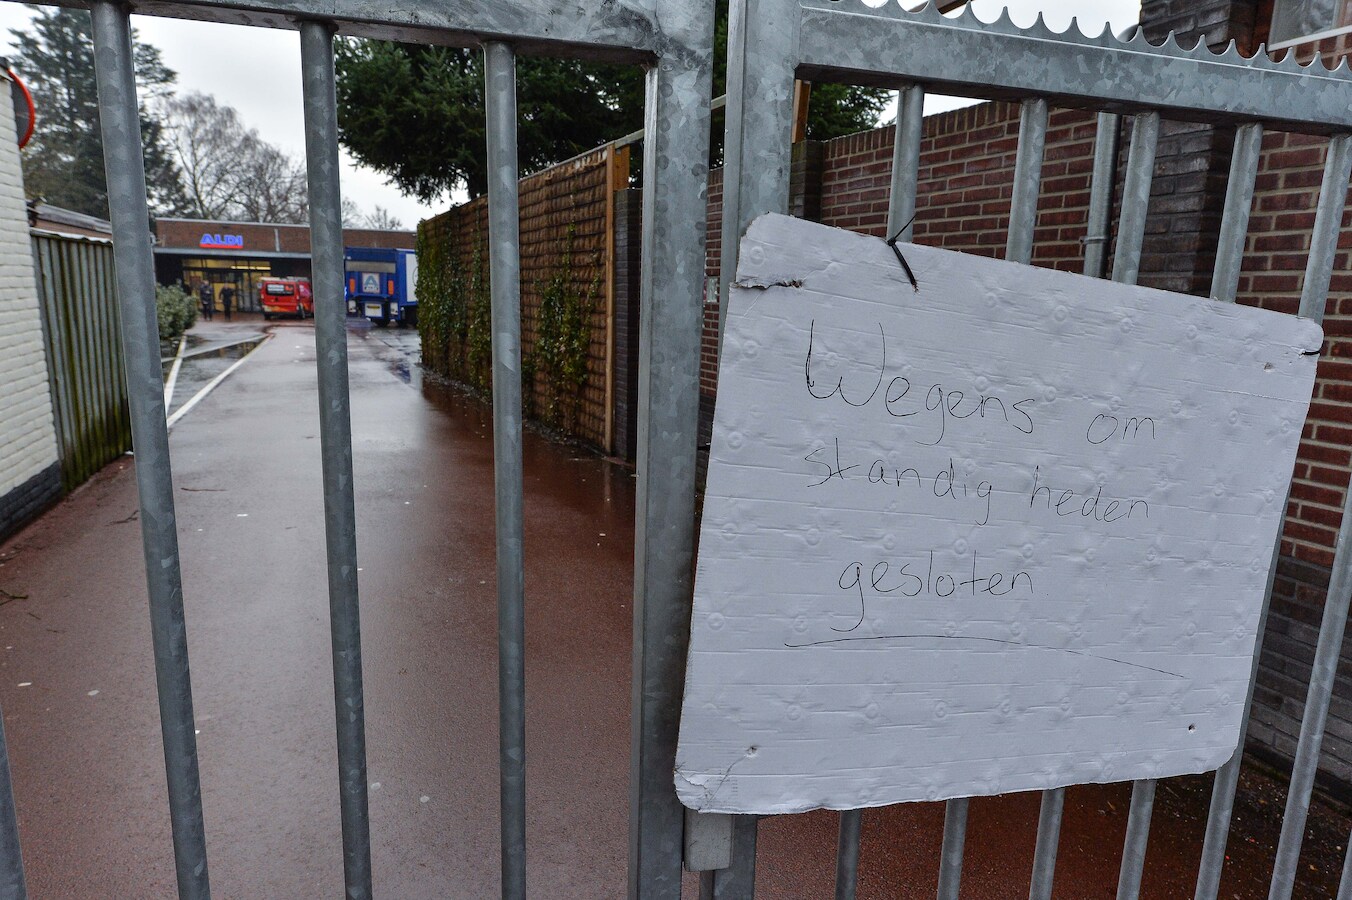 ALDI
Wegens om
standig heden
gesloten